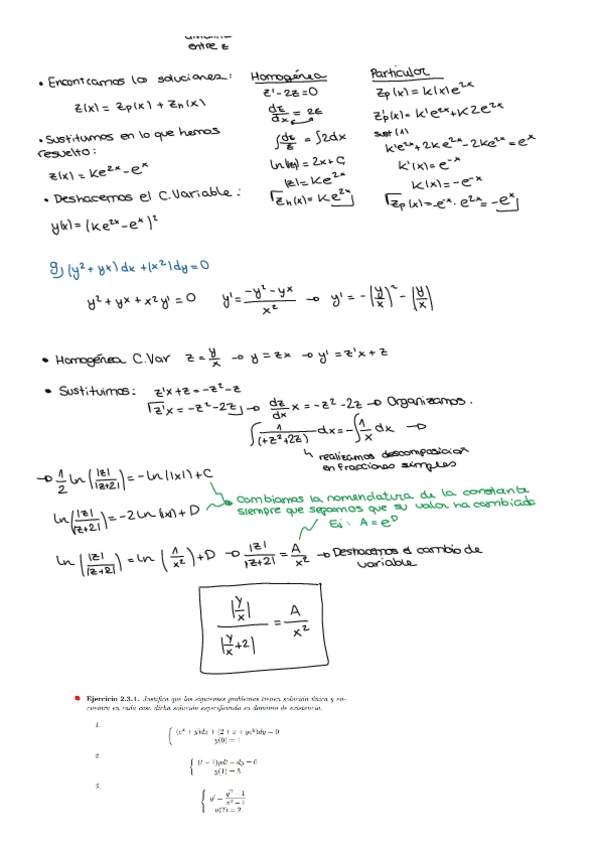 entre z
• Encontramos las soluciones:
z(x) = zp(x) + zh(x)
• Sustituimos en lo que hemos
resuelto:
z(x) = Ke^2x - e^x
• Deshacemos el C.Variable:
y(x) = (Ke^2x - e^x)^2
Homogénea
z' - 2z = 0
dz/dx = 2z
∫dz/z = ∫2dx
ln|z| = 2x + C
|z| = Ke^2x
zh(x) = Ke^2x
Particular
zp(x) = K(x)e^2x
z'p(x) = K'e^2x + K2e^2x
sust (1)
K'e^2x + 2Ke^2x - 2Ke^2x = e^x
K'(x) = e^-x
K(x) = -e^-x
zp(x) = -e^-x · e^2x = -e^x
g) (y² + yx) dx + (x²) dy = 0
y² + yx + x²y' = 0   y' = (-y² - yx)/x² → y' = -(y/x)² - (y/x)
• Homogénea C.Var z = y/x → y = zx → y' = z'x + z
• Sustituimos: z'x + z = -z² - z
z'x = -z² - 2z → dz/dx x = -z² - 2z → Organizamos.
∫ 1/(+z² + 2z) dx = -∫ 1/x dx →
↳ realizamos descomposicion
en fracciones simples
→ 1/2 ln(|z|/|z+2|) = -ln(|x|) + C
ln(|z|/|z+2|) = -2 ln|x| + D
Cambiamos la nomenclatura de la constante
siempre que sepamos que su valor ha cambiado
Ej: A = e^D
ln(|z|/|z+2|) = ln(1/x²) + D → |z|/|z+2| = A/x² → Deshacemos el cambio de
variable
|y/x| / |y/x + 2| = A/x²
Ejercicio 2.3.1. Justifica que los siguientes problemas tienen solución única y en-
cuentra en cada caso dicha solución especificando su dominio de existencia.
1.
y(0) = 1
2.
3.